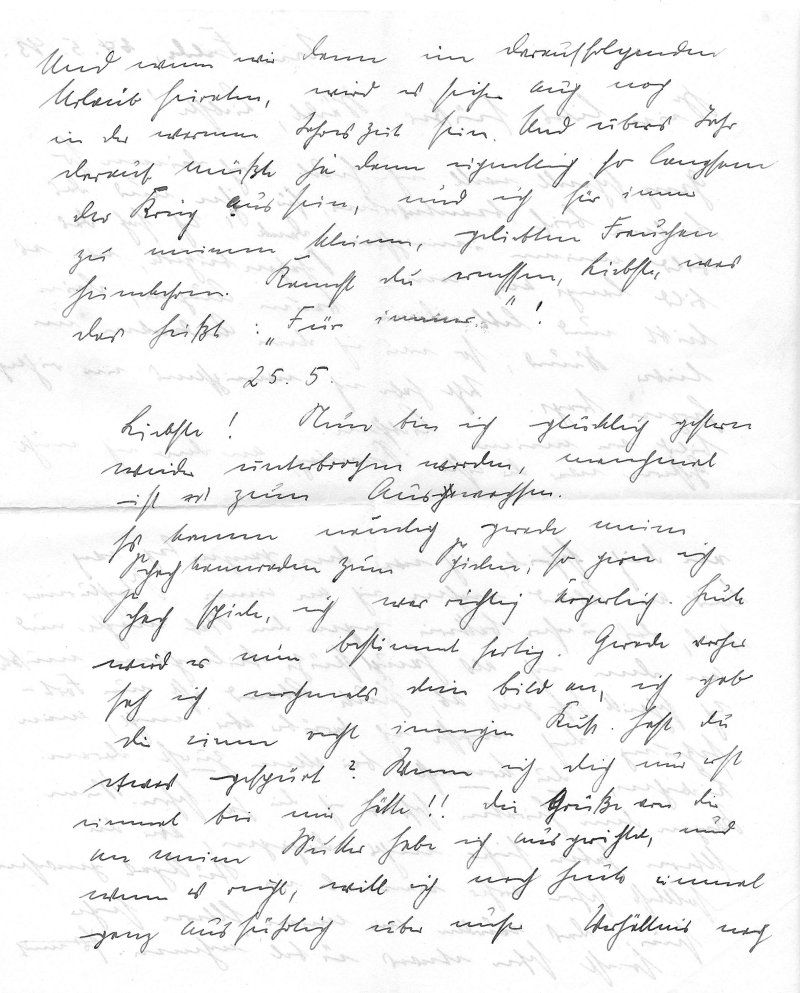 Und wenn wir dann im darauffolgenden
Urlaub heiraten, wird es sicher auch noch
in der warmen Jahreszeit sein. Und übers Jahr
darauf müßte ja dann eigentlich so langsam
der Krieg aus sein, und ich für immer
zu meinem kleinen, geliebten Frauchen
heimkehren. Kannst du ermessen, Liebste, was
das heißt: „Für immer."!
25. 5.
Liebste! Nun bin ich glücklich gestern
wieder unterbrochen worden, manchmal
ist es zum Auswachsen.
Es kamen nämlich gerade meine
Schachkameraden zum Spielen, so gern ich
Schach spiele, ich war richtig ärgerlich. Heute
wird er nun bestimmt fertig. Gerade vorher
sah ich nochmals dein Bild an, ich gab
dir einen recht innigen Kuß. Hast du
etwas gespürt? Wenn ich dich nur erst
einmal bei mir hätte!! Die Grüße von dir
an meine Mutter habe ich ausgerichtet, und
wenn es reicht, will ich noch heute einmal
ganz ausführlich über unser Verhältnis nach